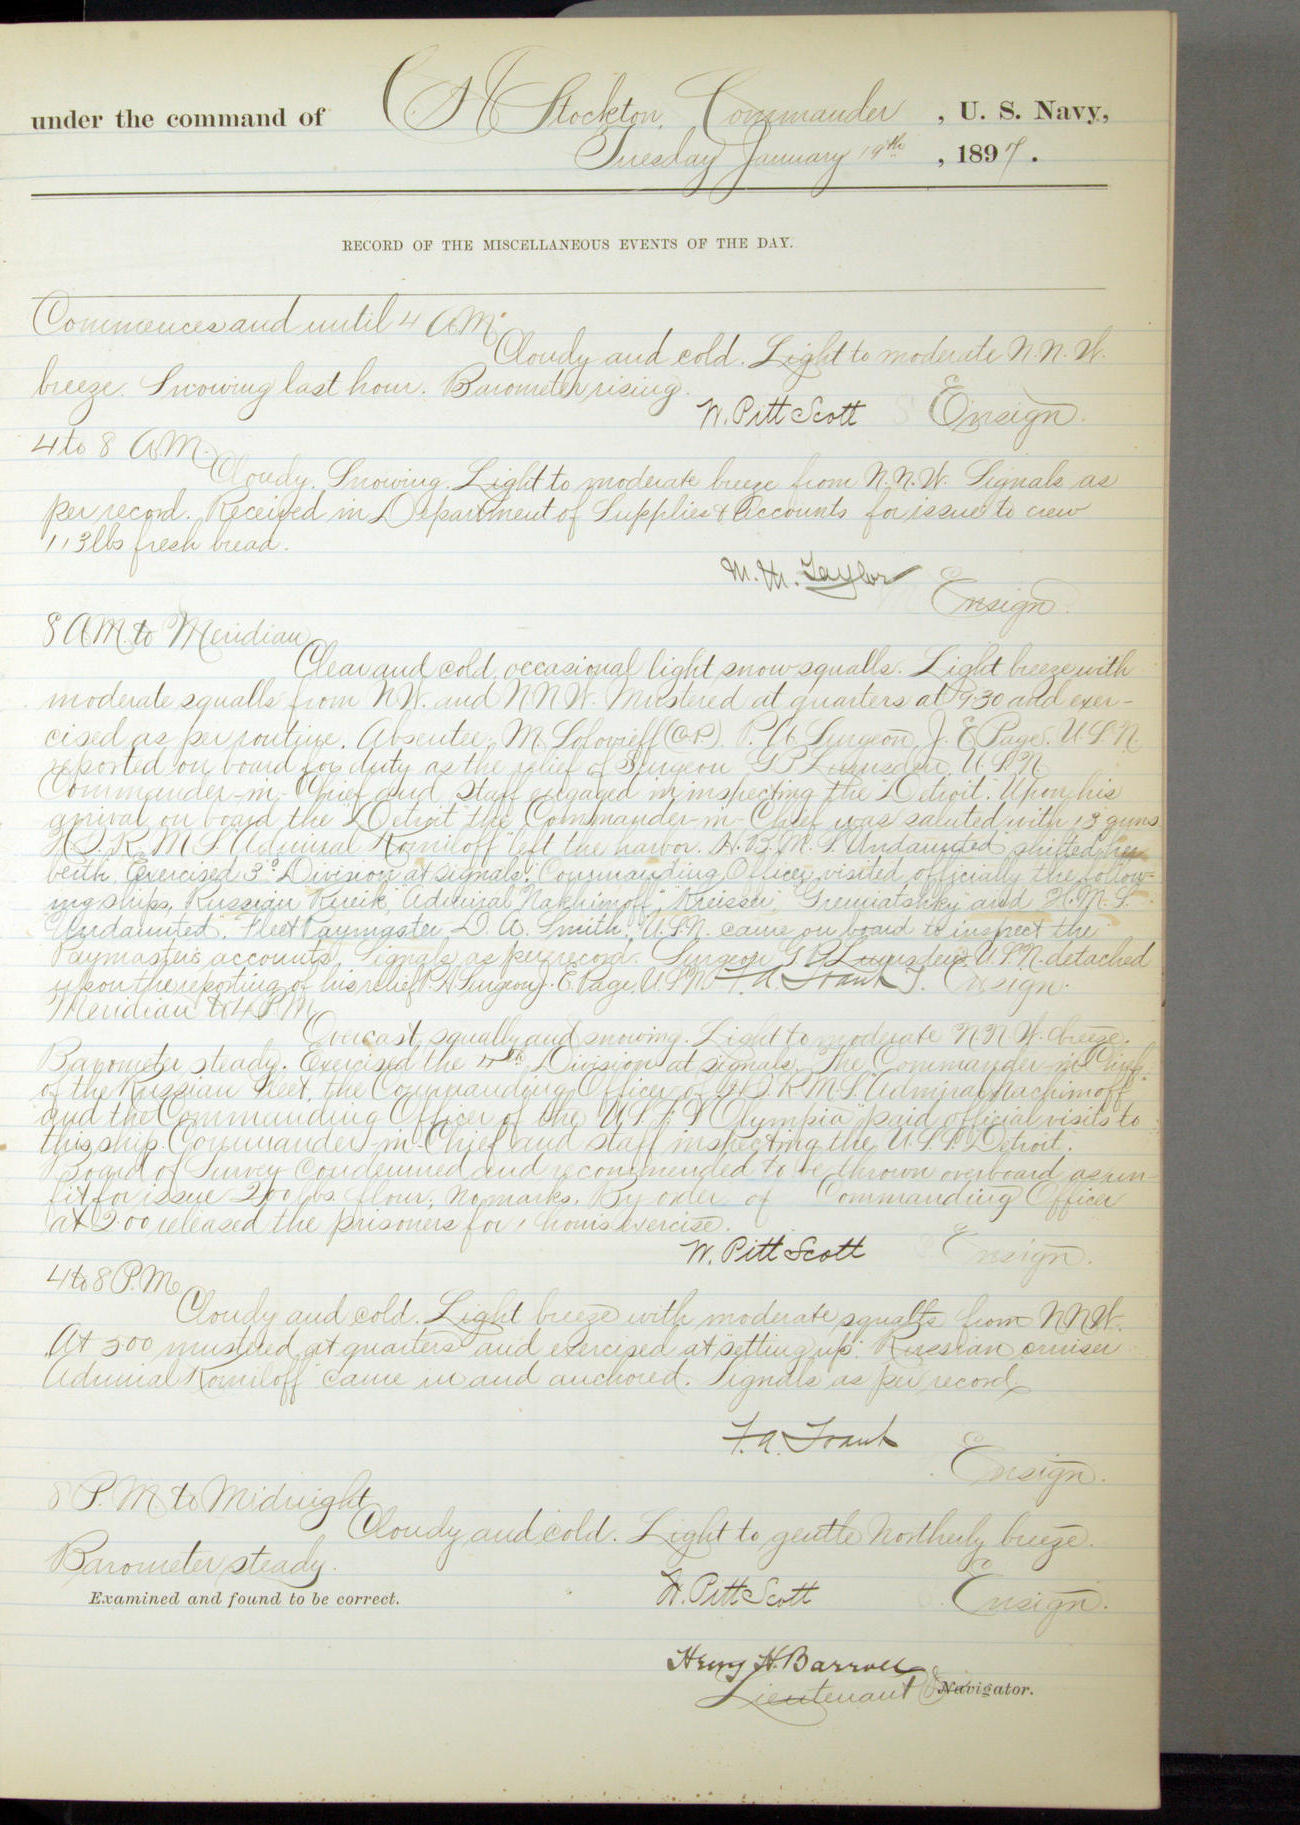 under the command of C H Stockton, Commander, U. S. Navy,
Tuesday January 19th, 1897.
RECORD OF THE MISCELLANEOUS EVENTS OF THE DAY.
Commences and until 4 A.M.
Cloudy and cold. Light to moderate N.N.W.
breeze. Snowing last hour. Barometer rising.
W. Pitt Scott Ensign.
4 to 8 A.M.
Cloudy. Snowing. Light to moderate breeze from N.N.W. Signals as
per record. Received in Department of Supplies & Accounts for issue to crew
113 lbs fresh bread.
M. M. Taylor
Ensign.
8 A.M. to Meridian
Clear and cold, occasional light snow squalls. Light breeze with
moderate squalls from N.W. and N.N.W. Mustered at quarters at 9.30 and exer-
cised as per routine. Absentee: M. Solovieff (O.S.). P. A. Surgeon J. E. Page. U.S.N.
reported on board for duty as the relief of Surgeon G. P. Lumsden U.S.N.
Commander-in-Chief and staff engaged in inspecting the Detroit. Upon his
arrival on board the Detroit the Commander-in-Chief was saluted with 13 guns
H.I.R.M.S. "Admiral Korniloff" left the harbor. H.B.M.S. Undaunted shifted her
berth. Exercised 3d Division at signals. Commanding Officer visited officially the follow-
ing ships, Russian "Rurik", "Admiral Nakhimoff", "Kreisser", "Gremiatshky" and H.M.S.
Undaunted. Fleet Paymaster D. A. Smith, U.S.N. came on board to inspect the
Paymaster's accounts. Signals as per record. Surgeon G. P. Lumsden, U.S.N. detached
upon the reporting of his relief P. A. Surgeon J. E. Page, U.S.N. F. A. Traut Ensign.
Meridian to 4 P.M.
Overcast, squally and snowing. Light to moderate N.N.W. breeze.
Barometer steady. Exercised the 4th Division at signals. The Commander-in-Chief
of the Russian Fleet, the Commanding Officer of H.I.R.M.S. "Admiral Nachimoff"
and the Commanding Officer of the U.S.F.S. "Olympia" paid official visits to
this ship. Commander-in-Chief and staff inspecting the U.S.S. Detroit.
Board of Survey condemned and recommended to be thrown overboard as un-
fit for issue 200 lbs. flour; No marks. By order of Commanding Officer
at 3.00 released the prisoners for 1 hours exercise.
W. Pitt Scott Ensign.
4 to 8 P.M.
Cloudy and cold. Light breeze with moderate squalls from N.N.W.
At 5.00 mustered at quarters and exercised at "setting up". Russian cruiser
Admiral Korniloff came in and anchored. Signals as per record.
F. A. Traut
Ensign.
8 P.M. to Midnight
Cloudy and cold. Light to gentle Northerly breeze.
Barometer steady.
Examined and found to be correct. W. Pitt Scott Ensign.
Henry H. Barroll
Lieutenant & Navigator.